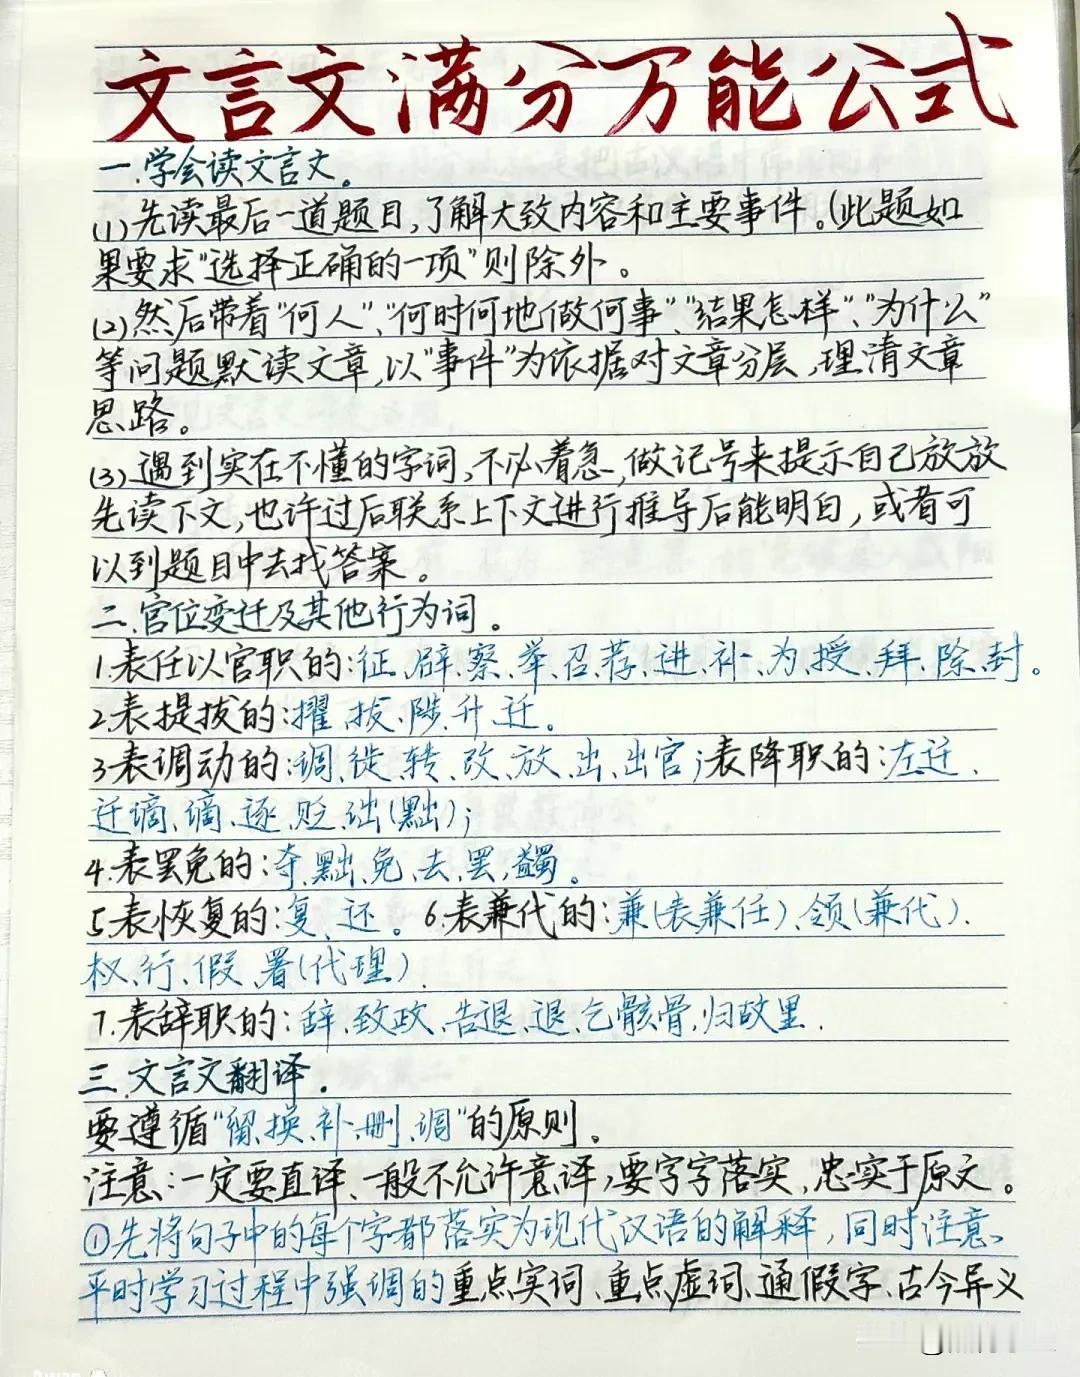 文言文满分万能公式
一.学会读文言文。
(1)先读最后一道题目,了解大致内容和主要事件。(此题如
果要求"选择正确的一项"则除外。
(2)然后带着"何人"、"何时何地做何事"、"结果怎样"、"为什么"
等问题默读文章,以"事件"为依据对文章分层,理清文章
思路。
(3)遇到实在不懂的字词,不必着急,做记号来提示自己放放
先读下文,也许过后联系上下文进行推导后能明白,或者可
以到题目中去找答案。
二.官位变迁及其他行为词。
1.表任以官职的:征、辟、察、举、召、荐、进、补、为、授、拜、除、封。
2.表提拔的:擢、拔、陟、升、迁。
3.表调动的:调、徙、转、改、放、出、出官;表降职的:左迁、
迁谪、谪、逐、贬、诎(黜);
4.表罢免的:夺、黜、免、去、罢、蠲。
5.表恢复的:复、还。6.表兼代的:兼(表兼任)、领(兼代)、
权、行、假、署(代理)
7.表辞职的:辞、致政、告退、退、乞骸骨、归故里.
三.文言文翻译.
要遵循"留、换、补、删、调"的原则。
注意:一定要直译、一般不允许意译,要字字落实,忠实于原文。
①先将句子中的每个字都落实为现代汉语的解释,同时注意
平时学习过程中强调的重点实词、重点虚词、通假字、古今异义